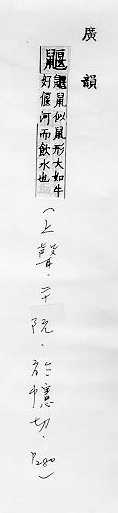 廣韻
鼴
鼴鼠似鼠形大如牛
好偃河而飲水也
(上聲.二十阮.於幰切.P280)